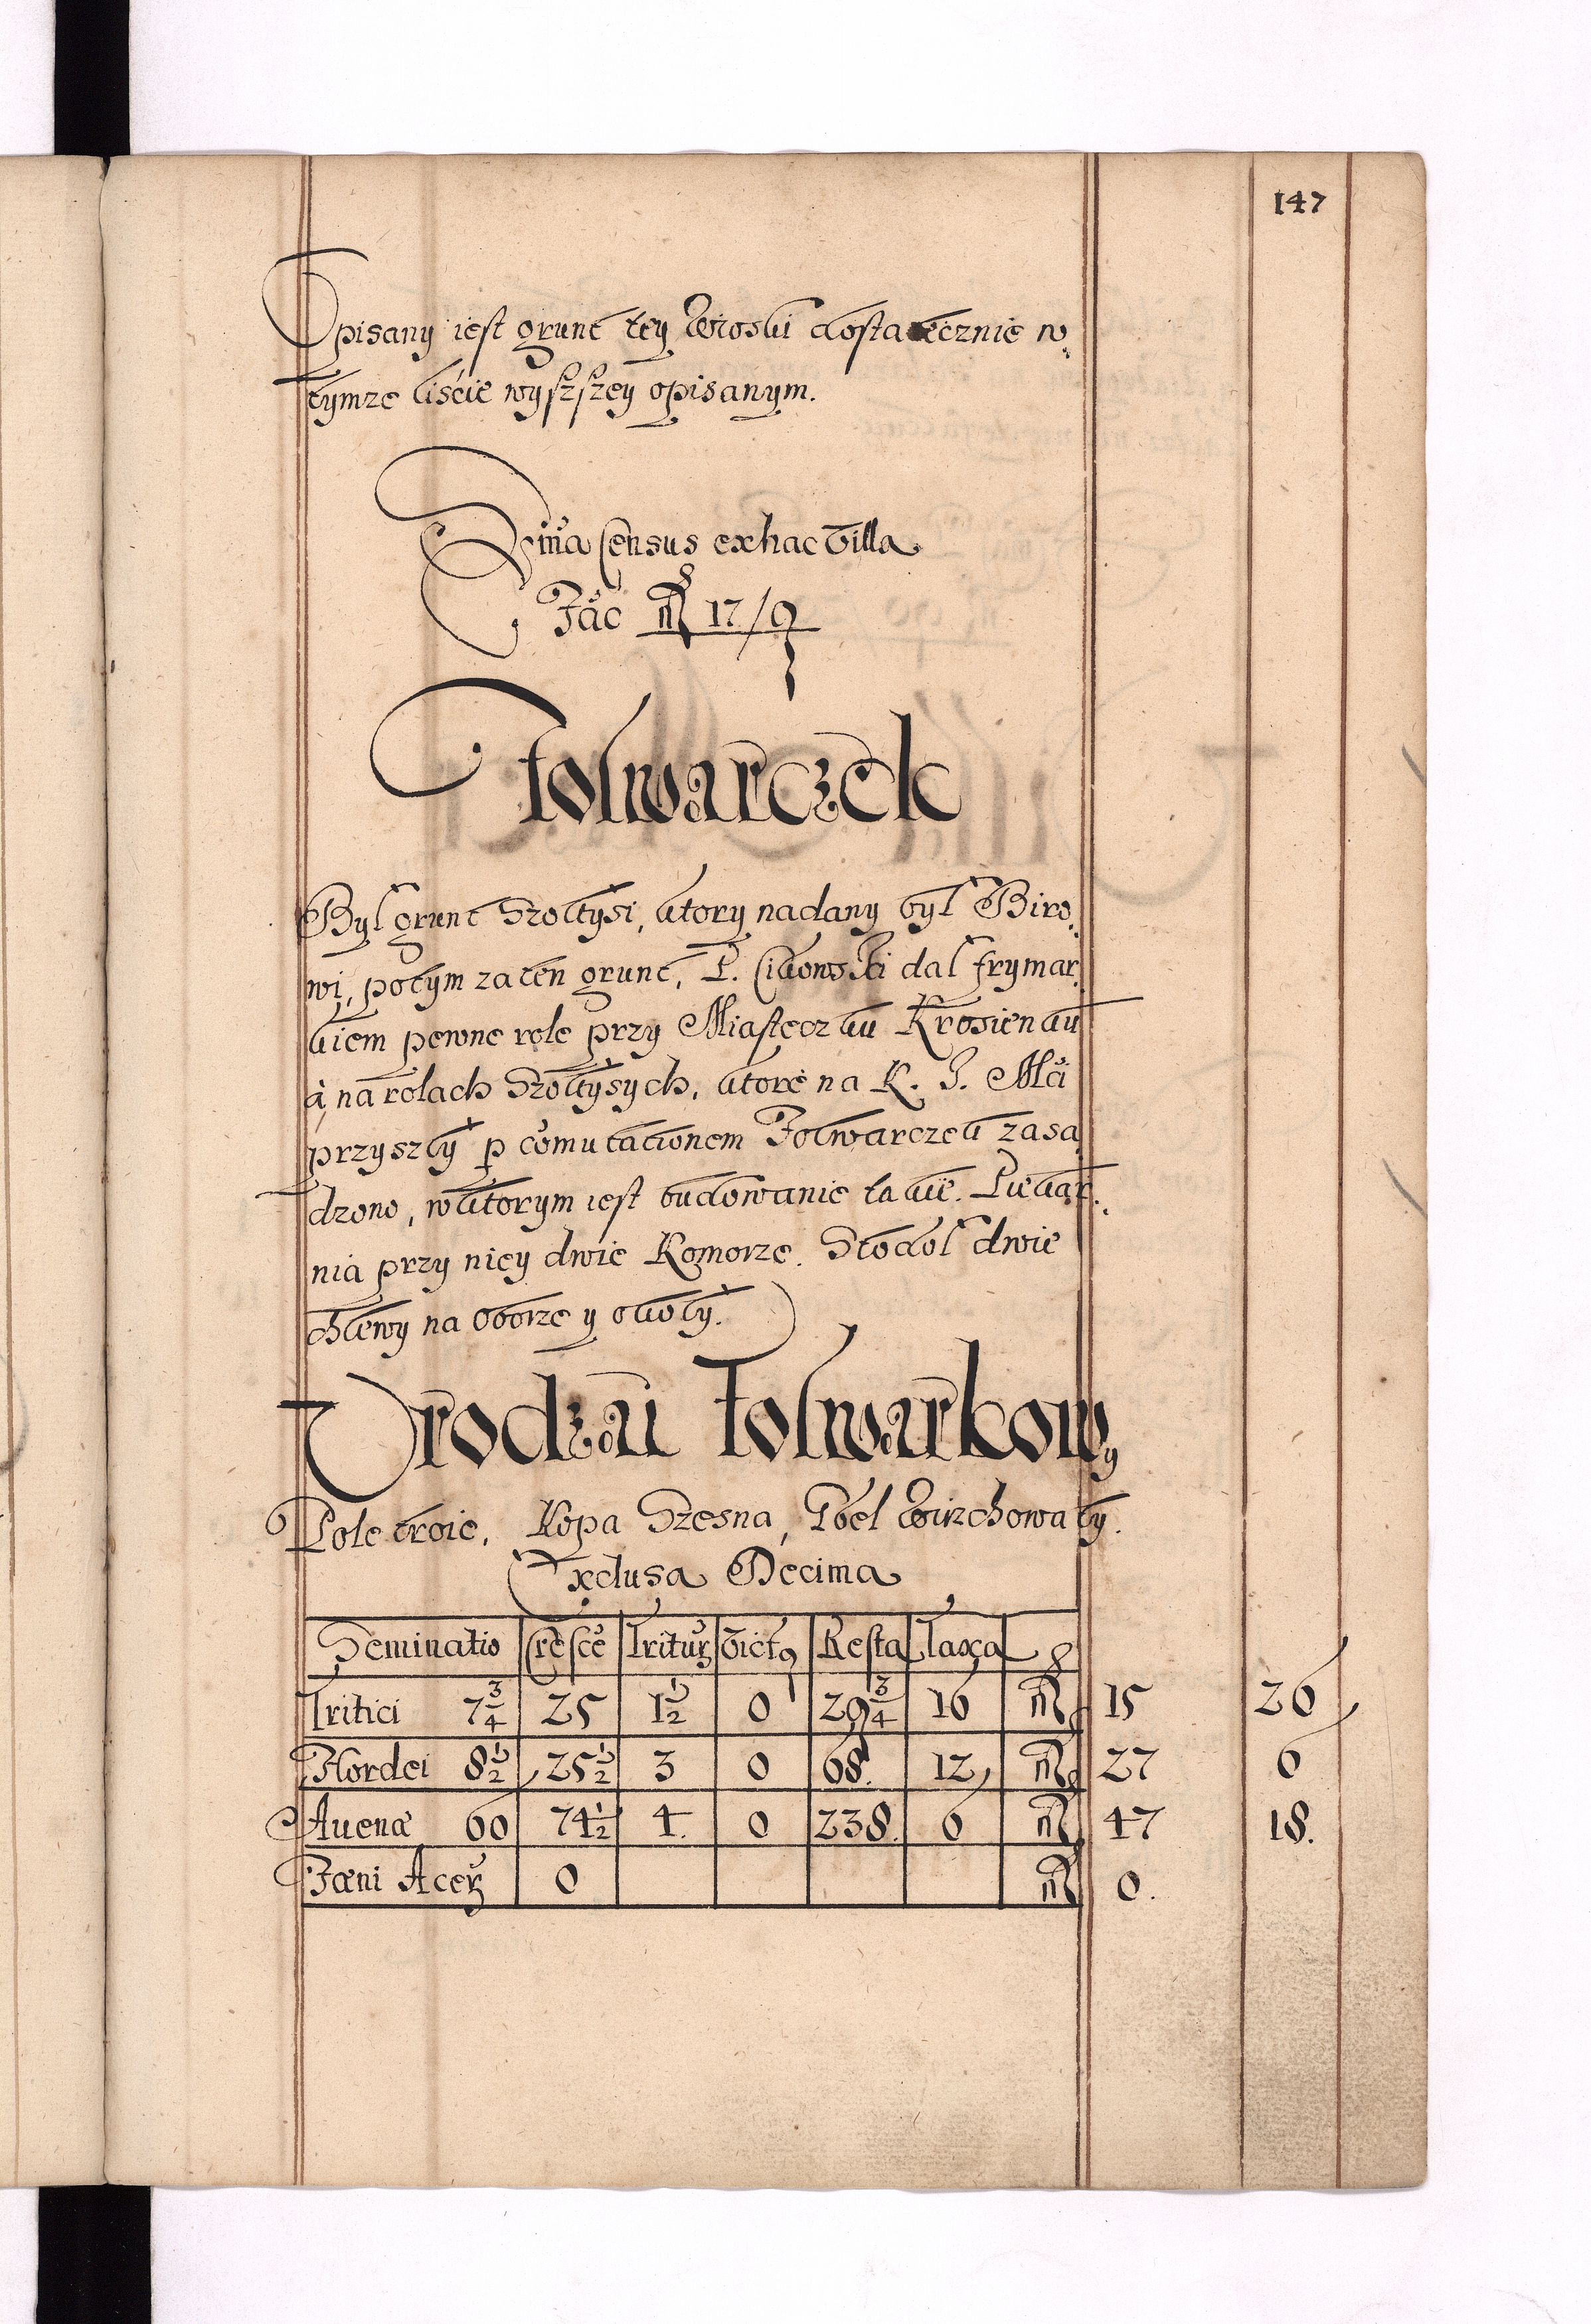 147
Opisany iest grunt tey Wioski dostatecznie w
tymze liście wyszszey opisanym.
Suma Census ex hac Villa
Fac 17/9
Folwarczek
Był grunt Szołtysi, ktory nadany był Biro
wi, potym za ten grunt, P. Cikowski dał frymar
kiem pewne role przy Miasteczku Krosienku
à na rolach Szołtysych, ktore na K. J. Mći
przyszły p comutationem Folwarczek zasa
dzono, w ktorym iest budowanie takie. Piekar
nia przy niey dwie Komorze. Stodol dwie
chlewy na oborze y okoły.
Vrodzai Folwarkowy
Pole troie, Kopa Szesna, Kbel Wirzchowaty.
Exclusa Decima
Seminatio Cresce Tritur Vict9 Resta Taxa
Tritici 7 3/4 25 1 1/2 0 29 3/4 16 15 26
Hordei 8 1/2 25 1/2 3 0 68. 12 27 6
Auenæ 60 74 1/2 4. 0 238. 6 47 18.
Fæni Acer 0 0.